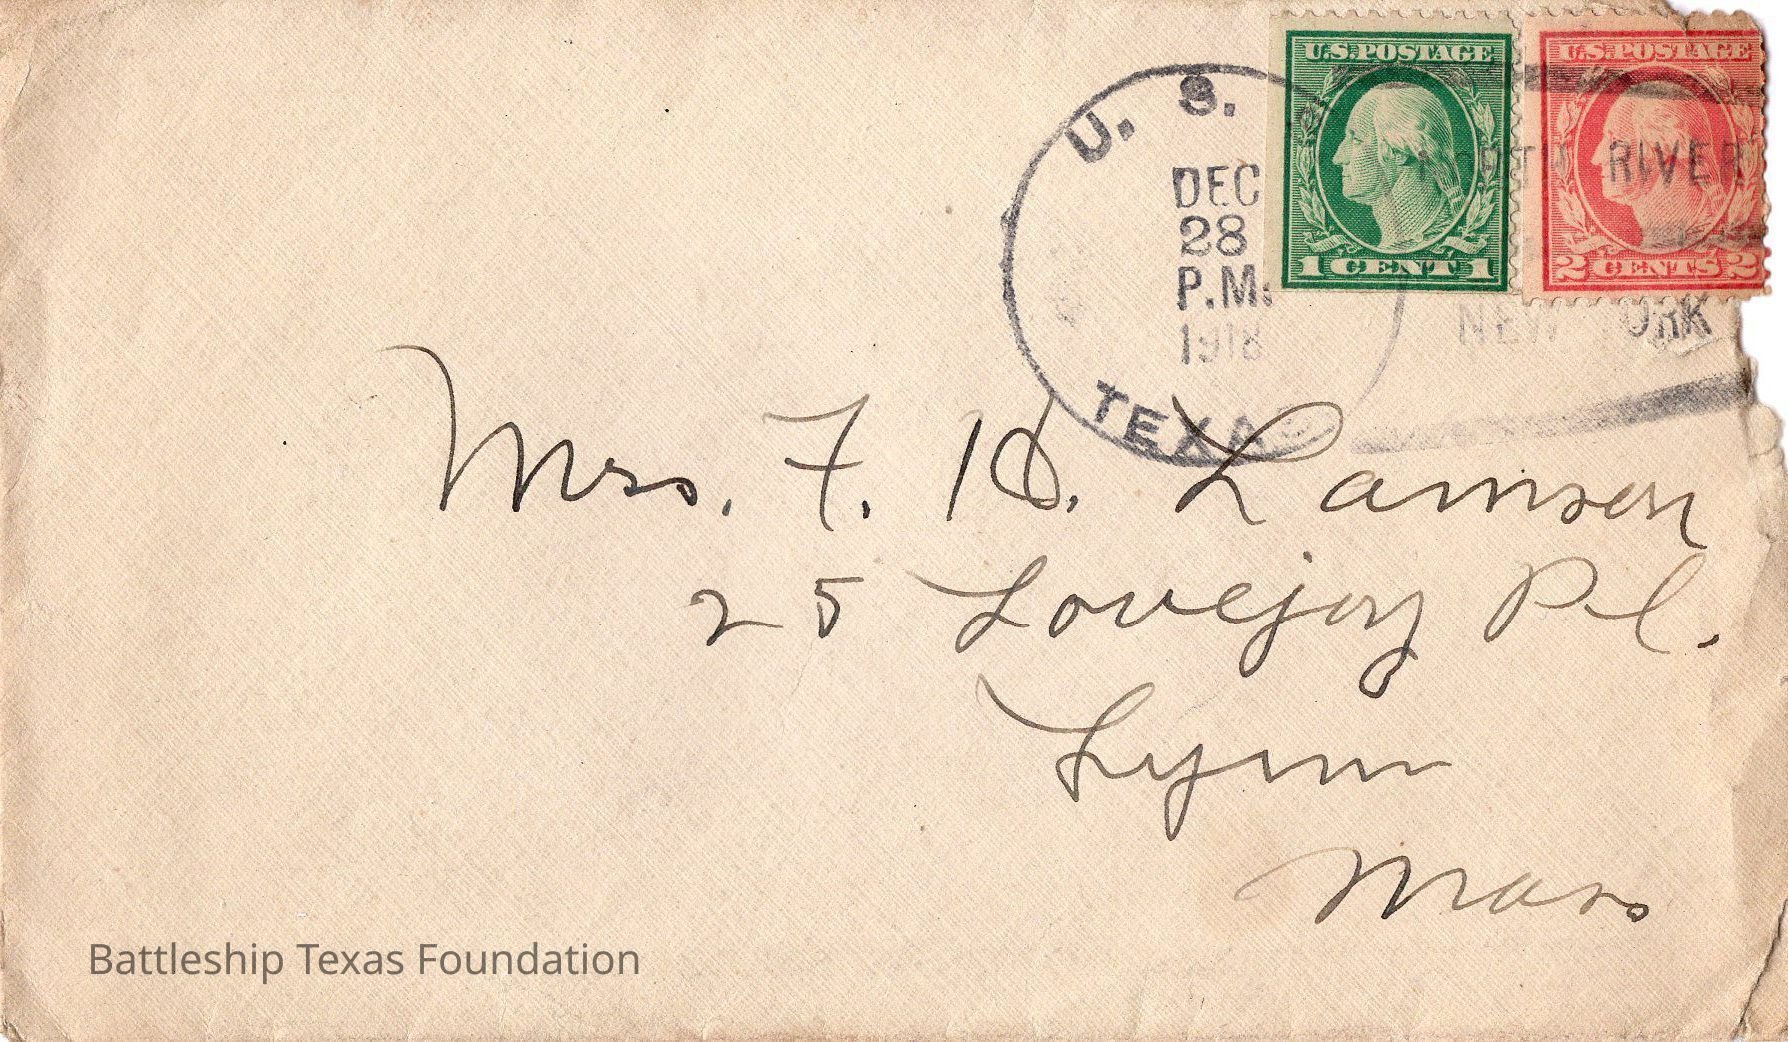 U.S.POSTAGE
1 CENT 1
U.S.POSTAGE
2 CENTS 2
U. S.
DEC
28
P.M.
1918
TEXAS
NORTH RIVER
NEW YORK
Mrs. F. H. Lamson
25 Lovejoy Pl.
Lynn
Mass
Battleship Texas Foundation